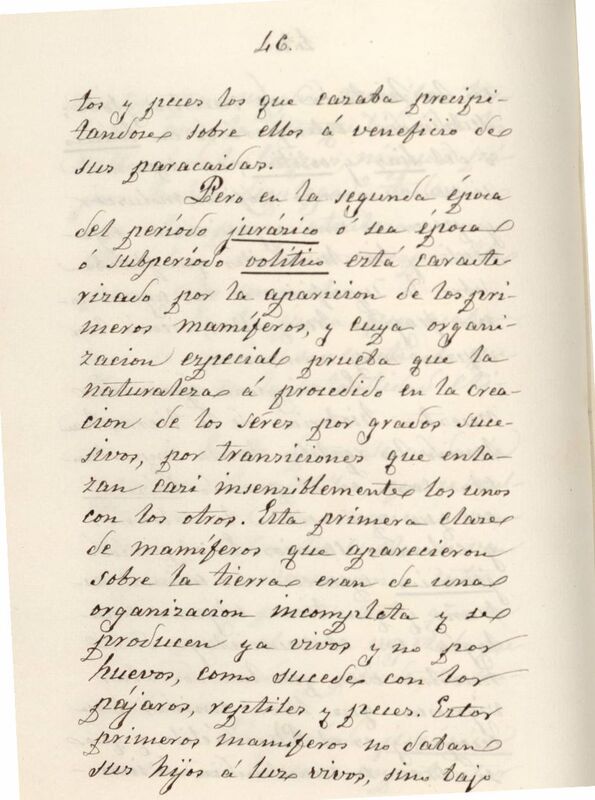 46.
tos y peces los que cazaba precipi-
tandose sobre ellos á veneficio de
sus paracaidas.
Pero en la segunda época
del período jurázico ó sea época
ó subperíodo oolítico está caracte-
rizado por la aparicion de los pri-
meros mamíferos, y cuya organi-
zacion especial prueba que la
naturaleza á procedido en la crea-
cion de los seres por grados suce-
sivos, por transiciones que enla-
zan casi insensiblemente los unos
con los otros. Esta primera clase
de mamíferos que aparecieron
sobre la tierra eran de una
organizacion incompleta y se
producen ya vivos y no por
huevos, como sucede con los
pájaros, reptiles y peces. Estos
primeros mamíferos no daban
sus hijos á luz vivos, sino bajo